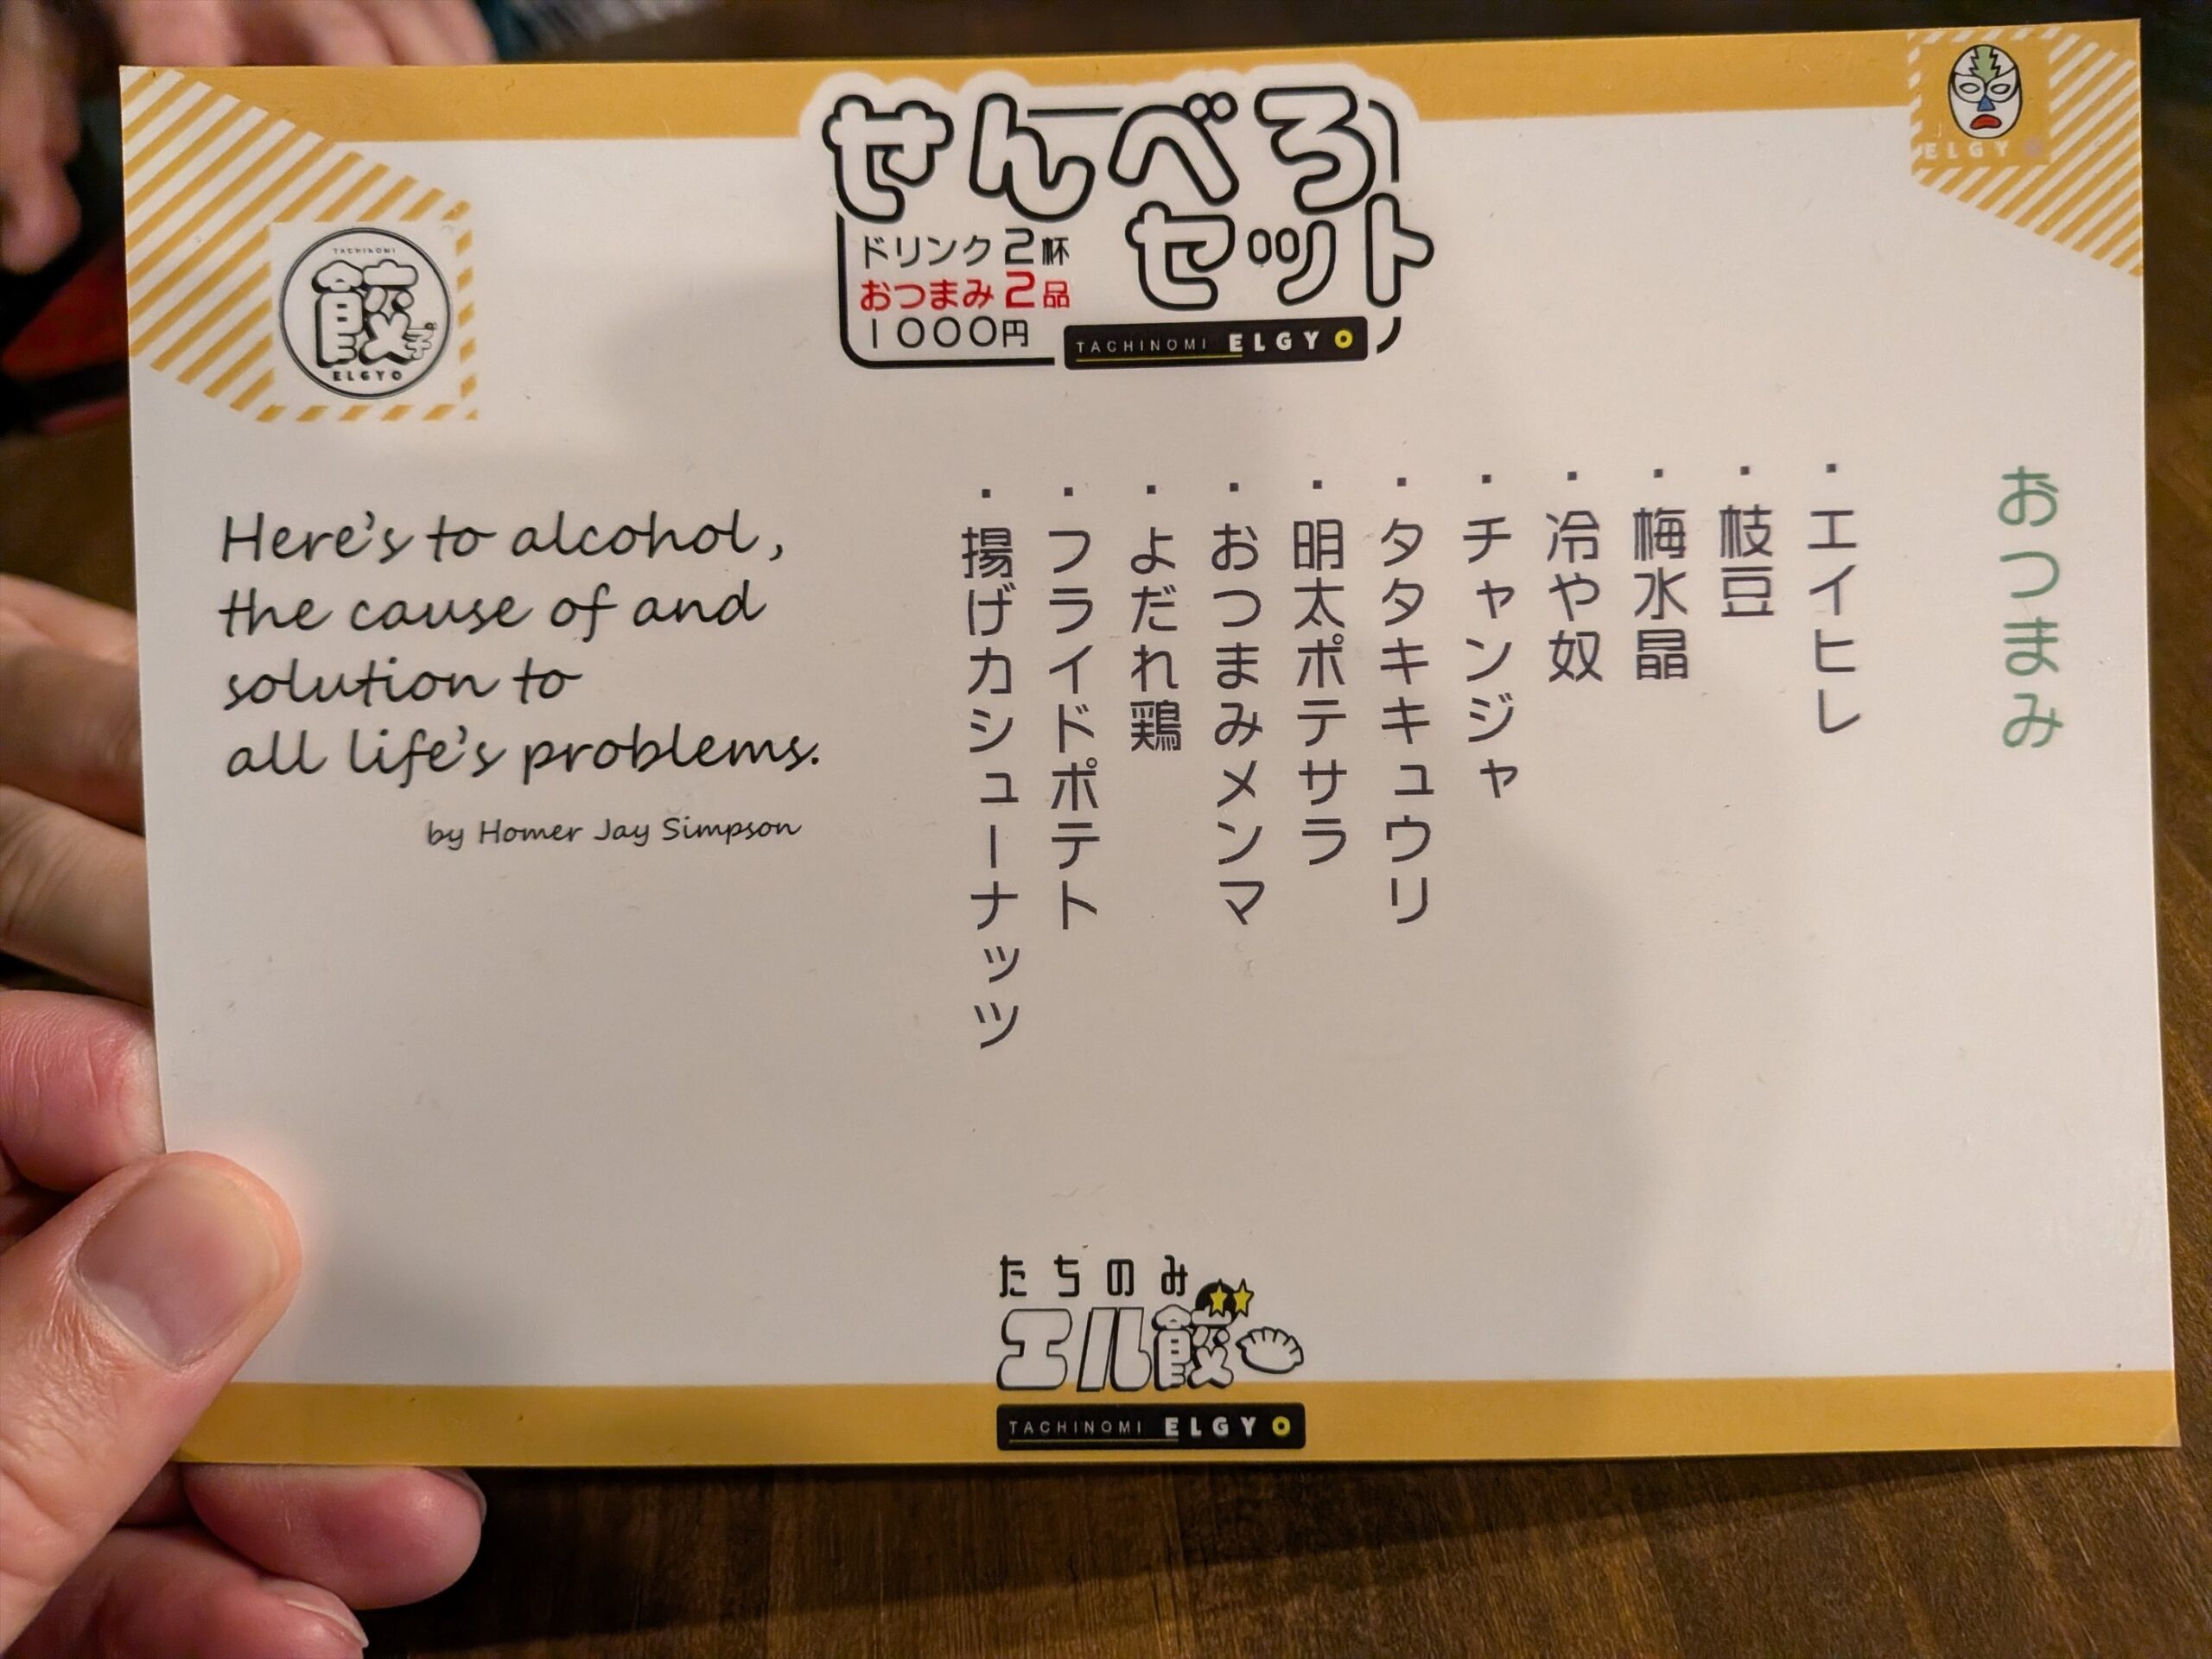 せんべろ
セット
ドリンク2杯
おつまみ2品
1000円
TACHINOMI ELGYO
ELGYO
TACHINOMI
餃子
ELGYO
おつまみ
・エイヒレ
・枝豆
・梅水晶
・冷や奴
・チャンジャ
・タタキキュウリ
・明太ポテサラ
・おつまみメンマ
・よだれ鶏
・フライドポテト
・揚げカシューナッツ
Here's to alcohol,
the cause of and
solution to
all life's problems.
by Homer Jay Simpson
たちのみ
エル餃
TACHINOMI ELGYO